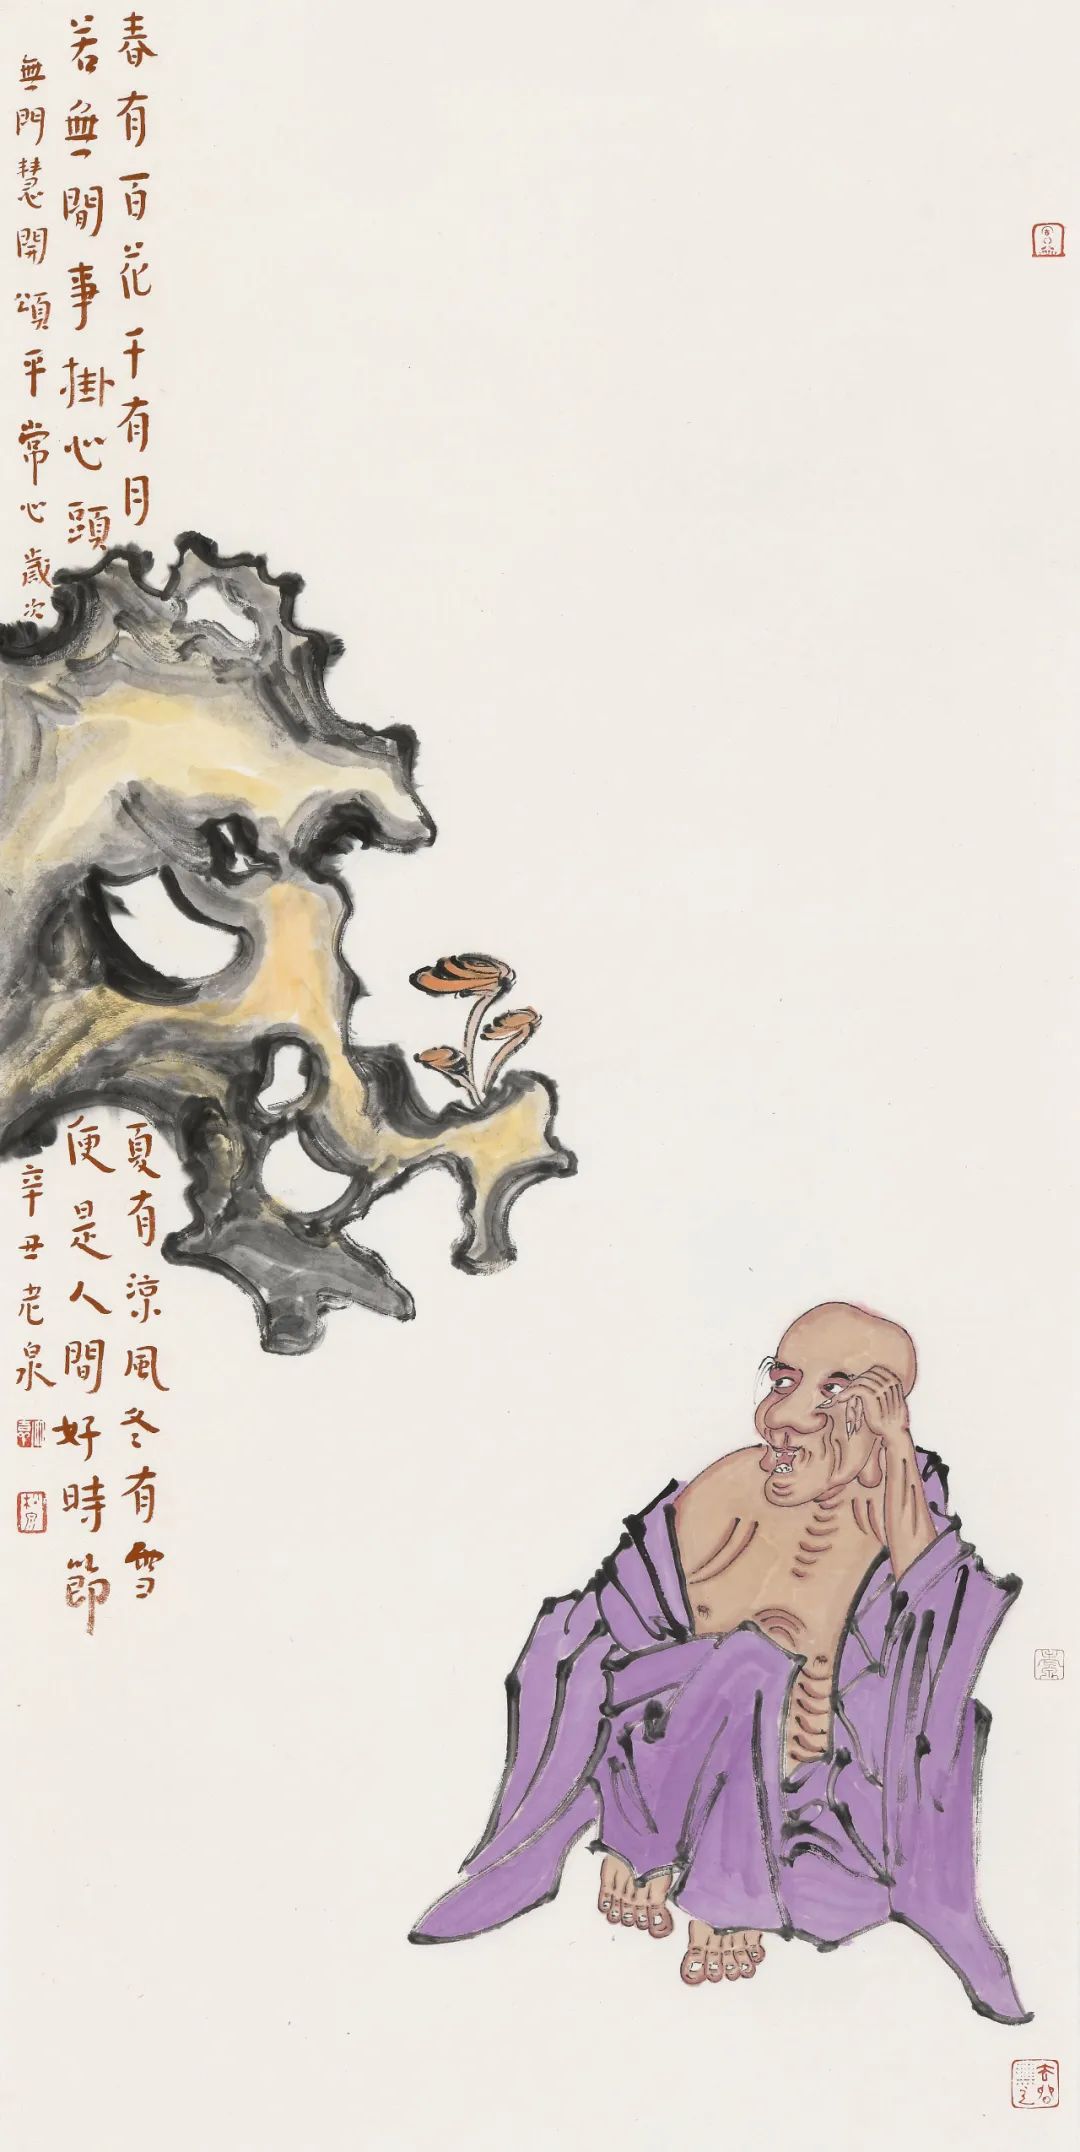 春有百花千有月
夏有涼風冬有雪
若無閒事掛心頭
便是人間好時節
無門慧開頌平常心歲次
辛丑老泉